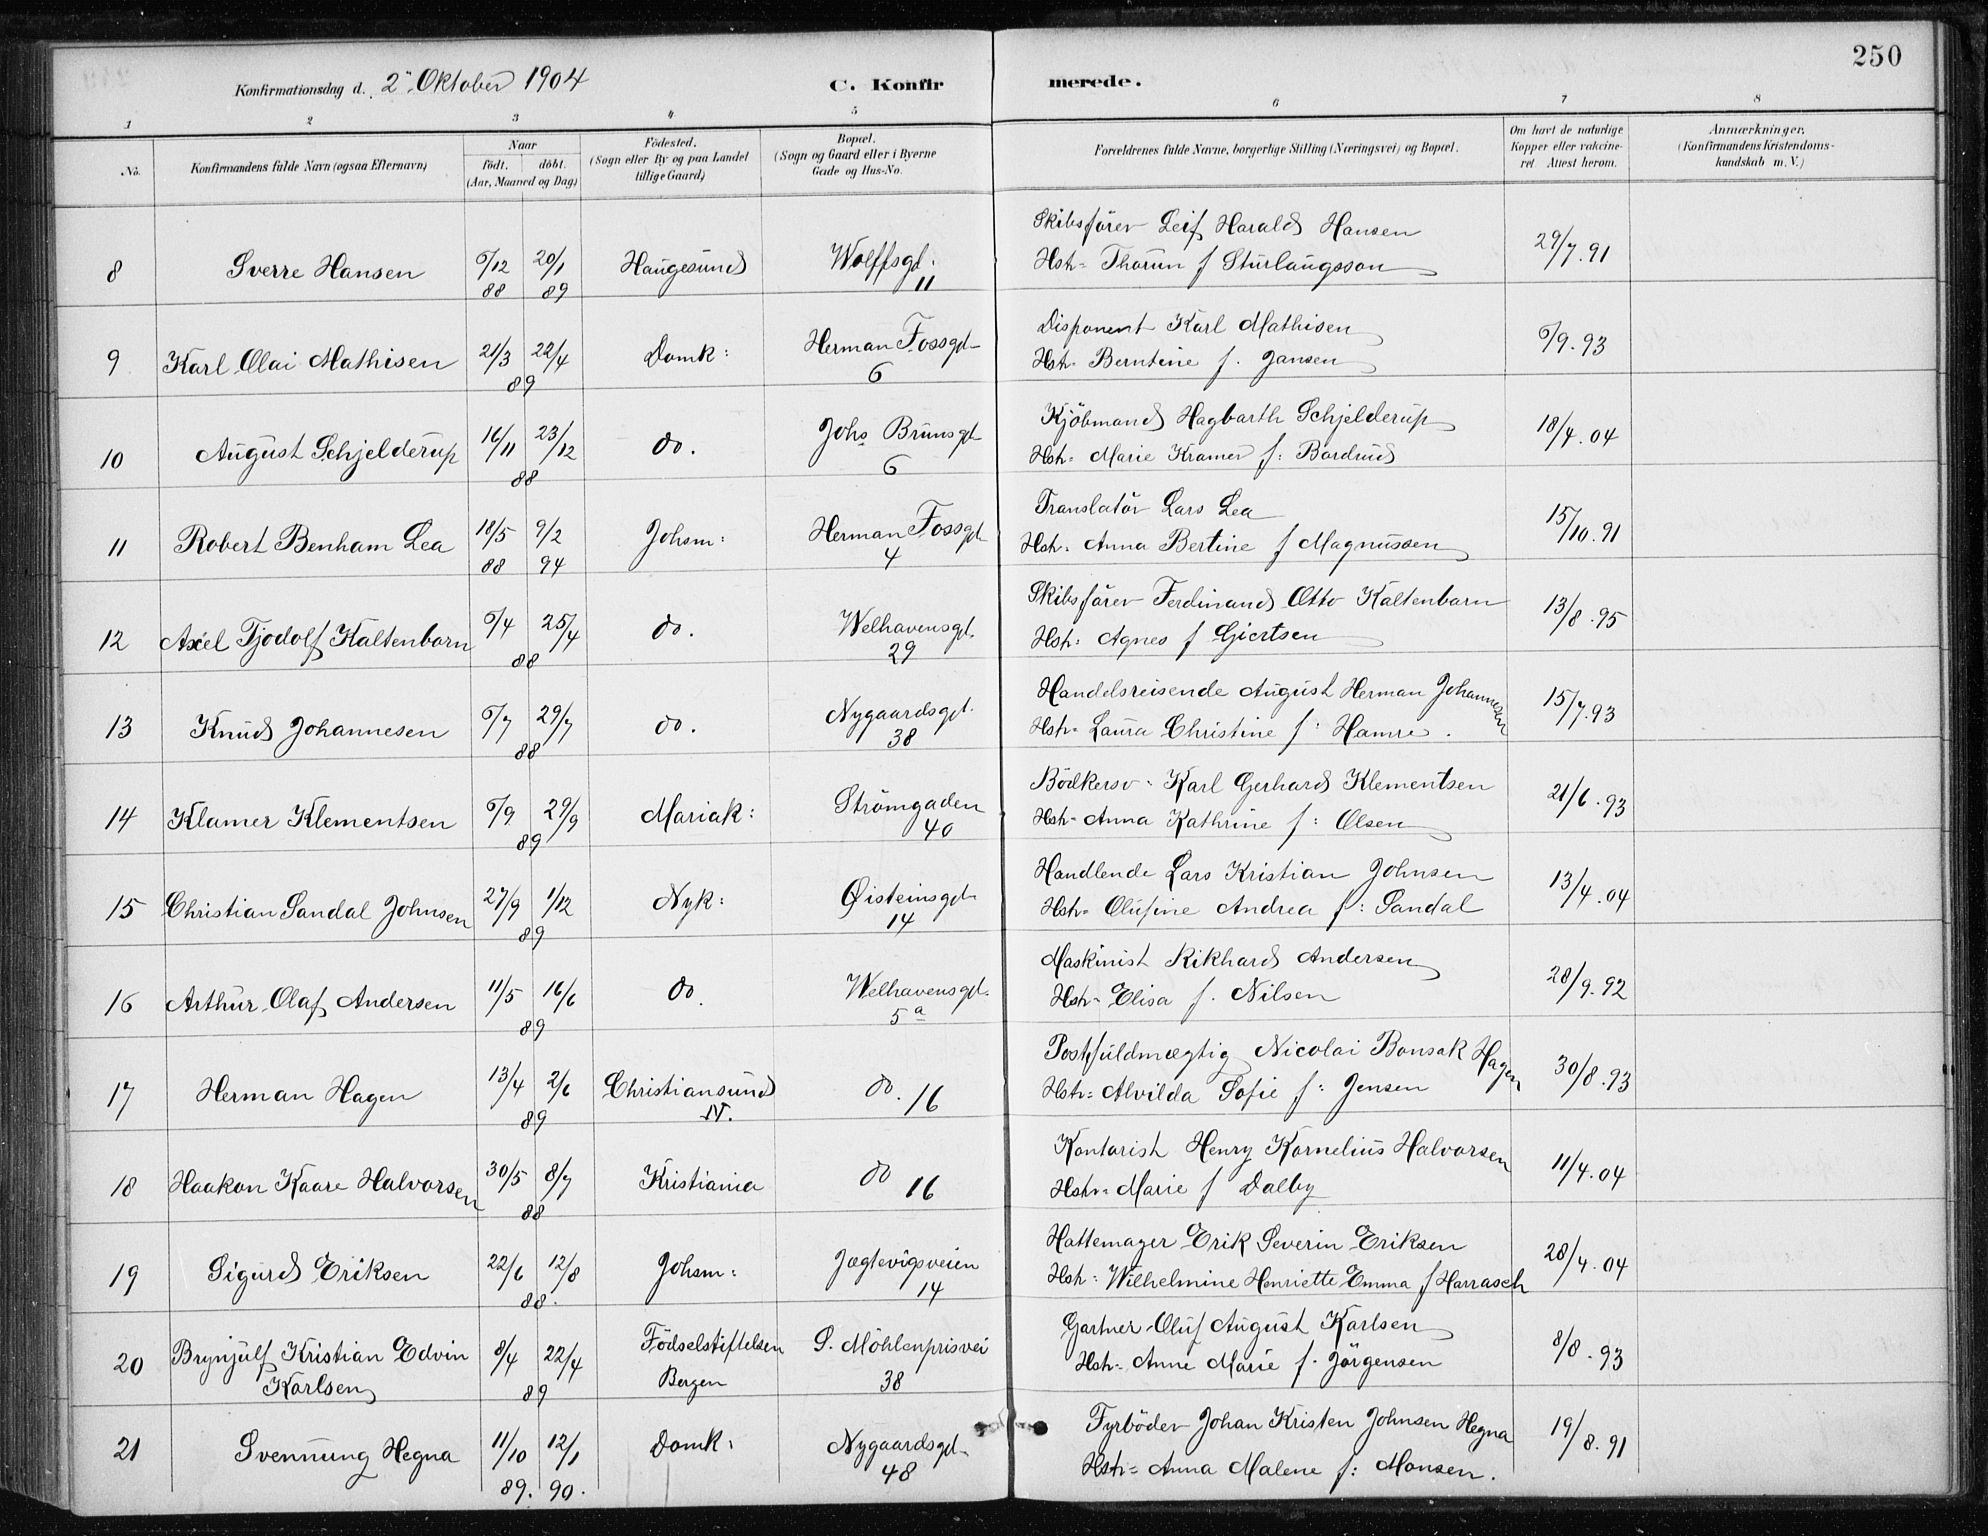 250
Konfirmationsdag d. 2' Oktober 1904 C. Konfirmerede.
1 2 3 4 5 6 7 8
No. Konfirmandens fulde Navn (ogsaa Efternavn) Naar født. døbt. (Aar, Maaned og Dag) Fødested. (Sogn eller By og paa Landet tillige Gaard) Bopæl. (Sogn og Gaard eller i Byerne Gade og Hus-No. Forældrenes fulde Navne, borgerlige Stilling (Næringsvei) og Bopæl. Om havt de naturlige Kopper eller vakcineret. Attest herom. Anmærkninger. (Konfirmandens Kristendomskundskab m. V.)
8 Sverre Hansen 6/12 88 20/1 89 Haugesund Wolffsgd. 11 Skibsfører Leif Harald Hansen
Hstr. Thorun f Sturlaugsson 29/7.91
9 Karl Olai Mathisen 21/3 22/4 89 Domk: Herman Fossgd 6 Disponent Karl Mathisen
Hstr. Berntine f. Jansen 6/9.93
10 August Schjelderup 16/11 23/12 88 do. Johs Brunsgd 6 Kjøbmand Hagbarth Schjelderup
Hstr. Marie Kramer f: Bordrud 18/4.04
11 Robert Benham Lea 18/5 88 9/2 94 Johsm: Herman Fossgd 4 Translatør Lars Lea
Hstr. Anna Bertine f Magnussen 15/10.91
12 Axel Tjodolf Kaltenborn 6/4 25/4 88 do. Welhavensgd. 29 Skibsfører Ferdinand Otto Kaltenborn
Hstr. Agnes f Giertsen 13/8.95
13 Knud Johannesen 6/7 29/7 88 do. Nygaardsgd. 38 Handelsreisende August Herman Johannesen
Hstr. Laura Christine f: Hamre. 15/7.93
14 Klamer Klementsen 6/9 29/9 89 Mariak: Strømgaden 40 Bødkersv. Karl Gerhard Klementsen
Hstr. Anna Kathrine f: Olsen 21/6.93
15 Christian Sandal Johnsen 27/9 1/12 89 Nyk: Øisteinsgd 14 Handlende Lars Kristian Johnsen
Hstr. Olufine Andrea f: Sandal 13/4.04
16 Arthur Olaf Andersen 11/5 16/6 89 do. Welhavensgd. 5a Maskinist Rikhard Andersen
Hstr. Elisa f. Nilsen 28/9.92
17 Herman Hagen 13/4 2/6 89 Christiansund N. do. 16 Postfuldmægtig Nicolai Bonsak Hagen
Hstr. Alvilda Sofie f: Jensen 30/8.93
18 Haakon Kaare Halvorsen 30/5 8/7 88 Kristiania do 16 Kontorist Henry Kornelius Halvorsen
Hstr. Marie f Dalby 11/4.04
19 Sigurd Eriksen 22/6 12/8 88. Johsm: Jægtevigsveien 14 Hattemager Erik Severin Eriksen
Hstr: Wilhelmine Henriette Emma f Harrasch 28/4.04
20 Brynjulf Kristian Edvin Karlsen 8/4 22/4 89 Fødselstiftelsen Bergen S. Møhlenprisvei 38 Gartner Oluf August Karlsen
Hstr. Anne Marie f. Jørgensen 8/8.93
21 Svennung Hegna 11/10 89. 12/1 90. Domk: Nygaardsgd. 48 Fyrbøder Johan Kristen Johnsen Hegna
Hstr. Anna Malene f: Monsen. 19/8.91